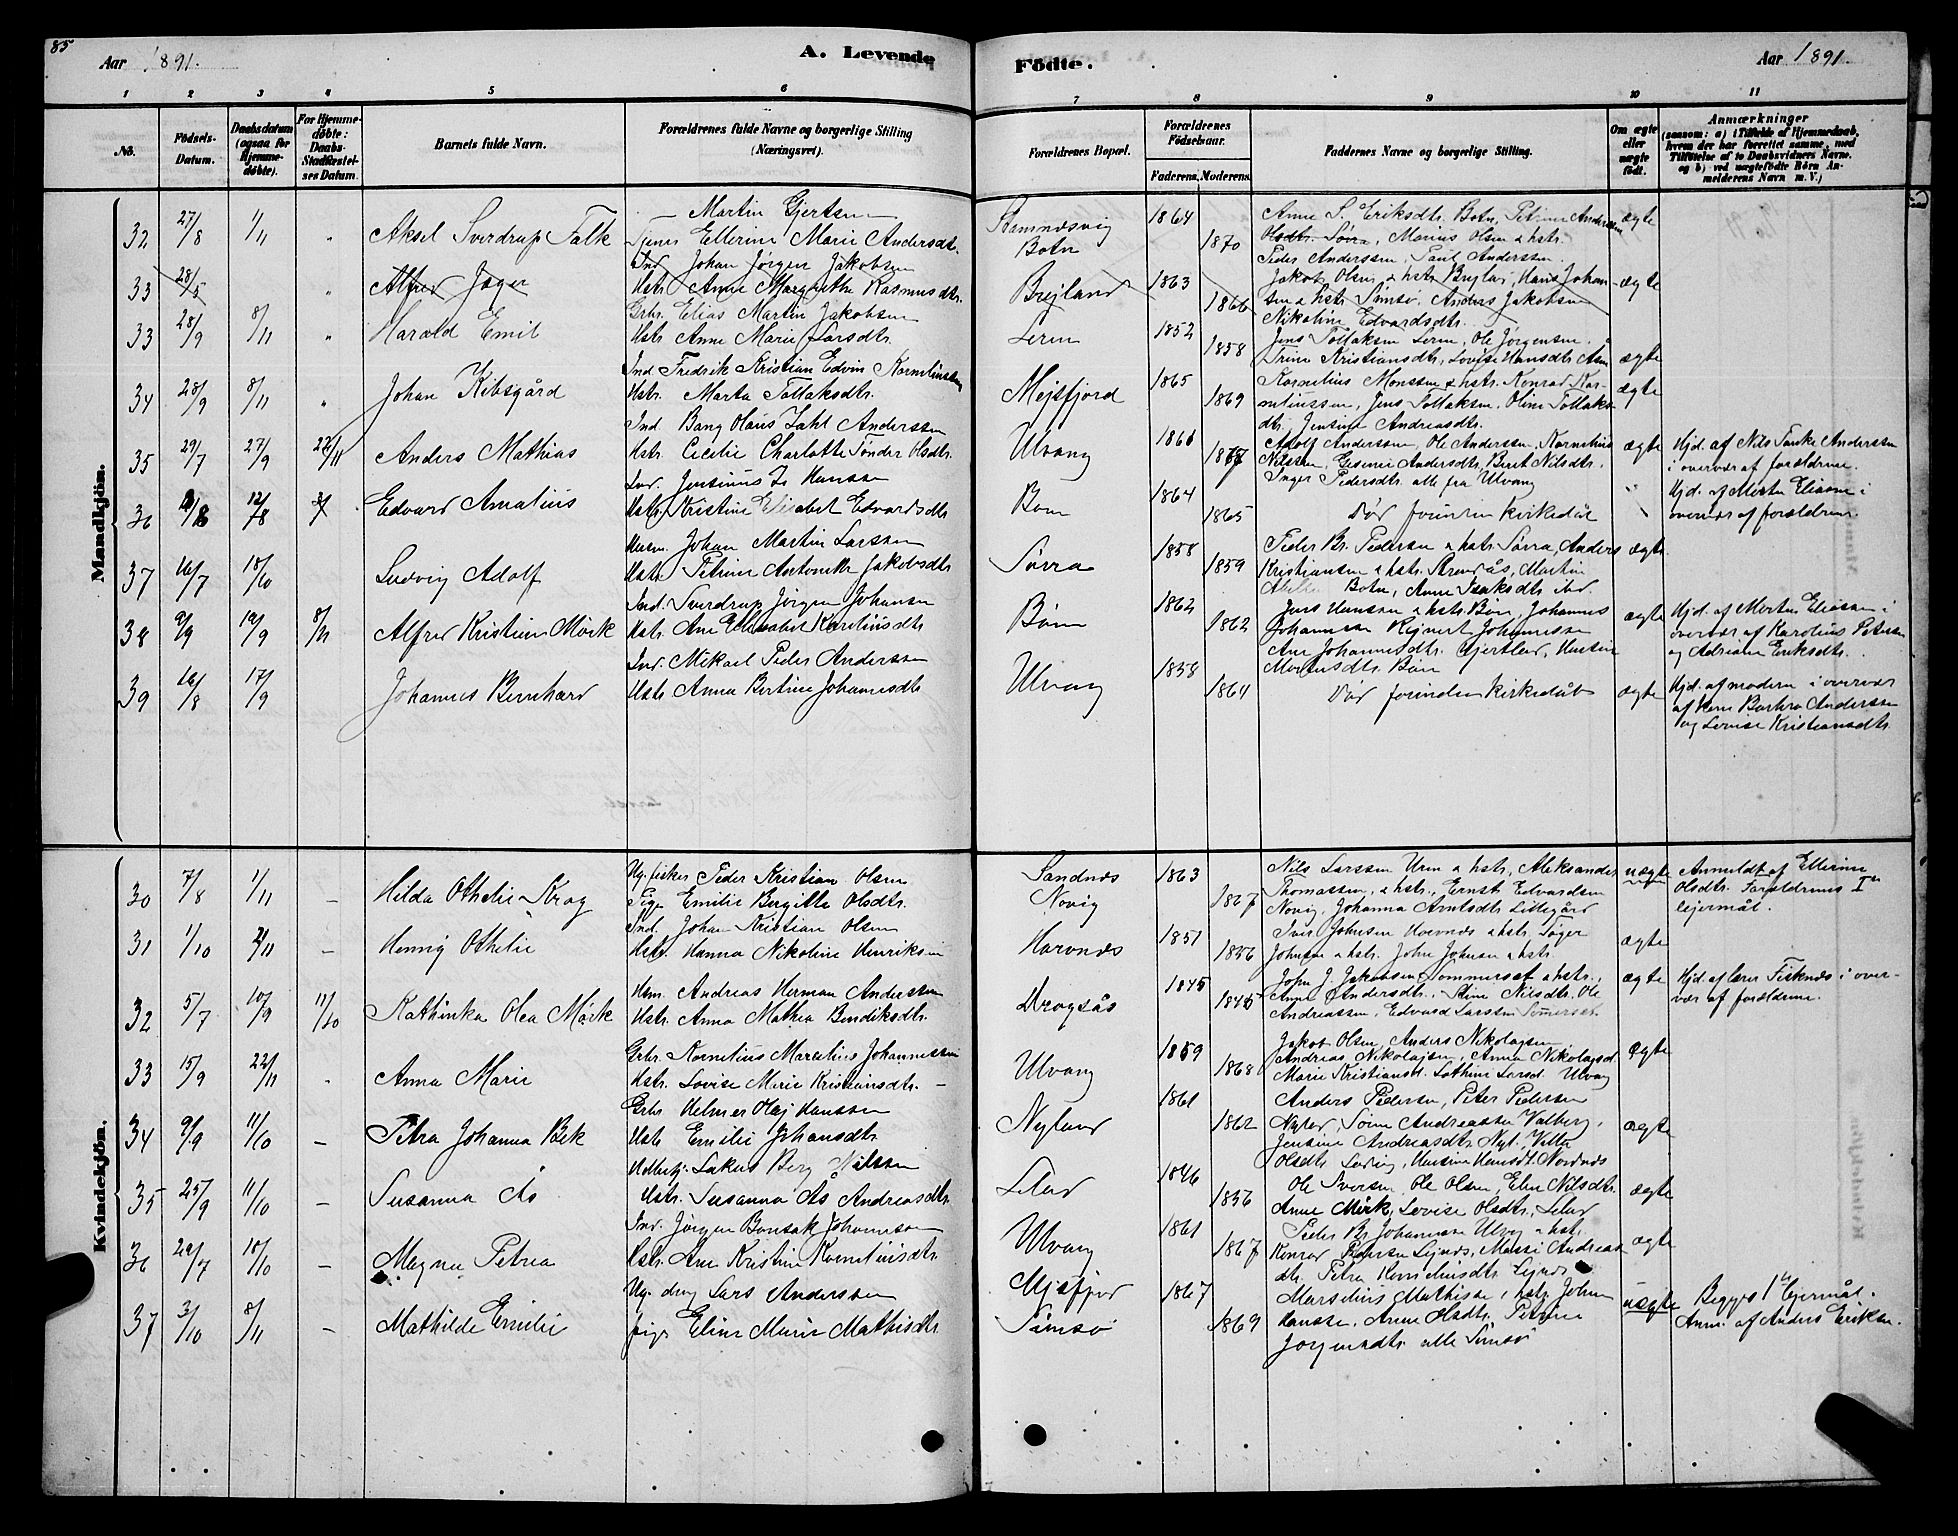 85
Aar 1891.
A. Levende
Födte.
Aar 1891.
1 2 3 4 5 6 7 8 9 10 11
No.
Födsels-Datum.
Daabsdatum (ogsaa for Hjemme-döbte).
For Hjemme-döbte: Daabs-Stadfæstel-ses Datum.
Barnets fulde Navn.
Forældrenes fulde Navne og borgerlige Stilling (Næringsvei).
Forældrenes Bopæl.
Forældrenes Födselsaar.
Faderens. Moderens.
Faddernes Navne og borgerlige Stilling.
Om ægte eller uægte födt.
Anmærkninger
(saasom: a) i Tilfælde af Hjemmedaab, hvem der har forrettet samme, med Tilföielse af to Daabsvidners Navne, og b) ved uægtefödte Börn Anmelderens Navn m. V.)
Mandkjön.
32 27/8 1/11 Aksel Sverdrup Falk
Martin Gjertsen
Ellerine Marie Andersdt.
Botn 1864 1870
Anne S. Eriksdtr. Botn, Petrine Andersen
Olsdtr. Sørra, Marius Olsen & hstr.
Peder Anderssen, Paul Anderssen
ægte
33 28/5 Alfred Jæger
Ind. Johan Jørgen Jakobsen
Hstr. Anne Margrethe Rasmusdtr.
Brejland 1863 1866
Jakob Olsen & hstr. Brejland, Hans Johan-
sen & hstr. Simsø, Anders Jakobsen
Nikoline Edvardsdtr.
ægte
33 28/9 8/11 Harald Emil
Grbr. Elias Martin Jakobsen
Hstr. Anne Marie Larsdtr.
Lerin 1852 1858
Jens Tollaksen Lerin, Ole Jørgensen
Trine Kristiansdtr., Lovise Hansdtr.
ægte
34 28/9 8/11 Johan Kibsgård
Ind. Fredrik Kristian Edvin Korneliussen
Hstr. Marta Tollaksdtr.
Mejsfjord 1865 1869
Kornelius Monssen & hstr. Konrad Kor-
neliussen, Jens Tollaksen, Oline Tollaks-
dtr. Jensine Andreasdtr.
ægte
35 29/7 27/9 22/11 Anders Mathias
Ind. Bang Olaus Zahl Anderssen
Hstr. Cecilie Charlotte Tønder Olsdtr.
Ulvang 1861
Adolf Anderssen, Ole Anderssen, Kornelius
Nilssen, Gesine Andersdtr., Berit Nilsdtr.
Inger Pedersdtr. alle fra Ulvang
ægte
Hjd. af Nils Tanke Anderssen
i overvær af forældrene.
36 12/8 Edvard Amatius
Ind. Jensinius Z. Hanssen
Hstr. Kristine Elisabet Edvardsdtr.
Bøen 1864 1865
Død forinden kirkedåb
Hjd. af Morten Eliassen i
overvær af forældrene.
37 16/7 18/10 Ludvig Adolf
Husm. Johan Martin Larssen
Hstr. Petrine Antonette Jakobsdtr.
Sørra 1858 1859
Peder Br. Pedersen & hstr. Sørra, Anders
Kristiansen & hstr. Martin
Botn, Anne Isaksdtr. ibid.
ægte
38 9/9 19/9 8/11 Alfred Kristian Mørk
Ind. Sverdrup Jørgen Johansen
Hstr. Ane Elisabet Korneliusdtr.
Bøen 1862 1862
Jens Hanssen & hstr. Bøen, Johannes
Johannessen Rejnert Johannessen
Ane Johannesdtr. Hjertland, Hansine
Mortensdtr. Bøen
ægte
Hjd. af Morten Eliassen i
overvær af Karolius Petersen
og Adriane Eriksdtr.
39 16/8 17/9 Johannes Bernhard
Ind. Mikael Peder Anderssen
Hstr. Anna Bertine Johannesdtr.
Ulvang 1858 1864
Død forinden kirkedåb
ægte
Hjd. af moderen i overvær
af Barbra Anderssen
og Lovise Kristiansdtr.
Kvindekjön.
30 7/8 1/11 Hilda Othelie Krog
Ug. fisker Peder Kristian Olsen
Pige Emilie Bergitte Olsdtr.
Sandnæs
Novig 1863 1867
Nils Larssen Urin & hstr., Aleksander
Thomassen & hstr., Ernst Edvardsen
Novig, Johanna Arntsdtr. Lillegård
uægte
Anmeldt af Ellerine
Olsdtr. Forældrenes 1ste
lejermål.
31 1/10 Henny Othelie
Ind. Johan Kristian Olsen
Hstr. Hanna Nikoline Henriksen
Havnnæs 1851 1856
Iver Johnsen Havnnæs & hstr. Jæger
Johnsen & hstr. John Johnsen & hstr.
ægte
32 5/7 10/9 11/10 Kathinka Olea Mørk
Hsm. Andreas Herman Anderssen
Hstr. Anna Mathea Bendiksdtr.
Dragsås 1845 1845
John J. Jakobsen Sommerset & hstr.,
Anne Andersdtr., Stine Nilsdtr., Ole
Andreassen, Edvard Larssen Somerset.
ægte
Hjd. af lærer Fisknæs i over-
vær af forældrene.
33 15/9 22/11 Anna Marie
Grbr. Kornelius Marselius Johannessen
Hstr. Lovise Marie Kristiansdtr.
Ulvang 1859 1868
Jakob Olsen, Anders Nikolajsen,
Andreas Nikolajsen, Anna Nikolajsd.
Marie Kristiansd. Lothine Larsd. Ulvang
ægte
34 9/9 11/10 Petra Johanna Bek
Grbr. Helmer Olaj Hanssen
Hstr. Emilie Johansdtr.
Nyland 1861 1862
Anders Pedersen, Peter Pedersen
Nyland, Søren Andreassen Valberg,
Jensine Andreasdtr. Nyl.
Olsdtr. Hansine Hansdt. Nordnæs
ægte
35 25/9 11/10 Susanna Ås
Lukas Berg Nilssen
Hstr. Susanna Ås Andreasdtr.
Leland 1846 1856
Ole Iversen, Ole Olsen, Elen Nilsdtr.
Anne Mørk, Lovise Olsdtr., Leland
ægte
36 29/7 18/10 Magna Petrea
Ind. Jørgen Bonsak Johannesen
Hstr. Ane Kristine Korneliusdtr.
Ulvang 1861 1867
Peder Br. Johannessen Ulvang & hstr.
Konrad Petersen Lejnæs, Massi Andreas-
dtr. Petra Korneliusdtr. Lejnæs
ægte
37 3/10 8/11 Mathilde Emelie
Ug. dreng Lars Anderssen
pige Eline Marie Mathisdtr.
Mejsfjord
Simsø 1867 1869
Marselius Mathissen & hstr. Johan
Hanssen, Anne Olsdtr., Petrine
Jørgensdtr. alle Simsø
uægte
Begges 1ste lejermål.
Anm. af Anders Eriksen.